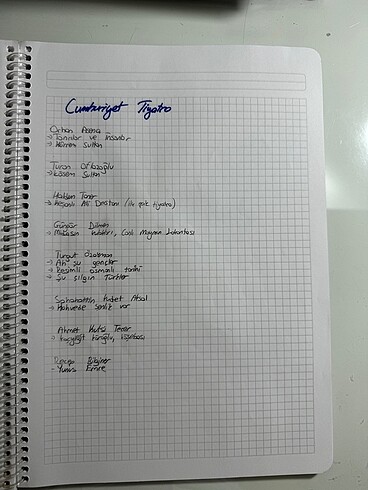 Cumhuriyet Tiyatro
Orhan Asena
→ Tanrılar ve İnsanlar
→ Hürrem Sultan
Turan Oflazoğlu
→ Kösem Sultan
Haldun Taner
→ Keşanlı Ali Destanı (ilk epik tiyatro)
Güngör Dilmen
→ Midasın Kulakları, Canlı Maymun Lokantası
Turgut Özakman
→ Ah şu gençler
→ Resimli osmanlı tarihi
→ Şu Çılgın Türkler
Sabahattin Kudret Aksal
→ Kahvede şenlik var
Ahmet Kutsi Tecer
→ Koçyiğit Köroğlu, Köşebaşı
Recep Bilginer
→ Yunus Emre